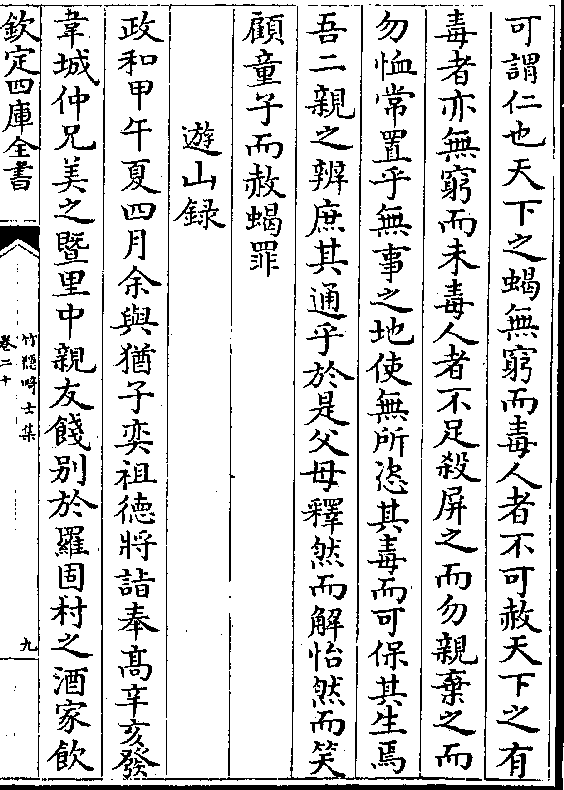 可謂仁也天下之蝎無窮而毒人者不可赦天下之有
毒者亦無窮而未毒人者不足殺屏之而勿親棄之而
勿恤常置乎無事之地使無所恣其毒而可保其生焉
吾二親之辨庶其通乎於是父母釋然而解怡然而笑
顧童子而赦蝎罪
遊山録
政和甲午夏四月余與猶子奕祖德將詣奉髙辛亥發
韋城仲兄美之暨里中親友餞别於羅固村之酒家飲
欽定四庫全書
竹隱畸士集
卷二十
九